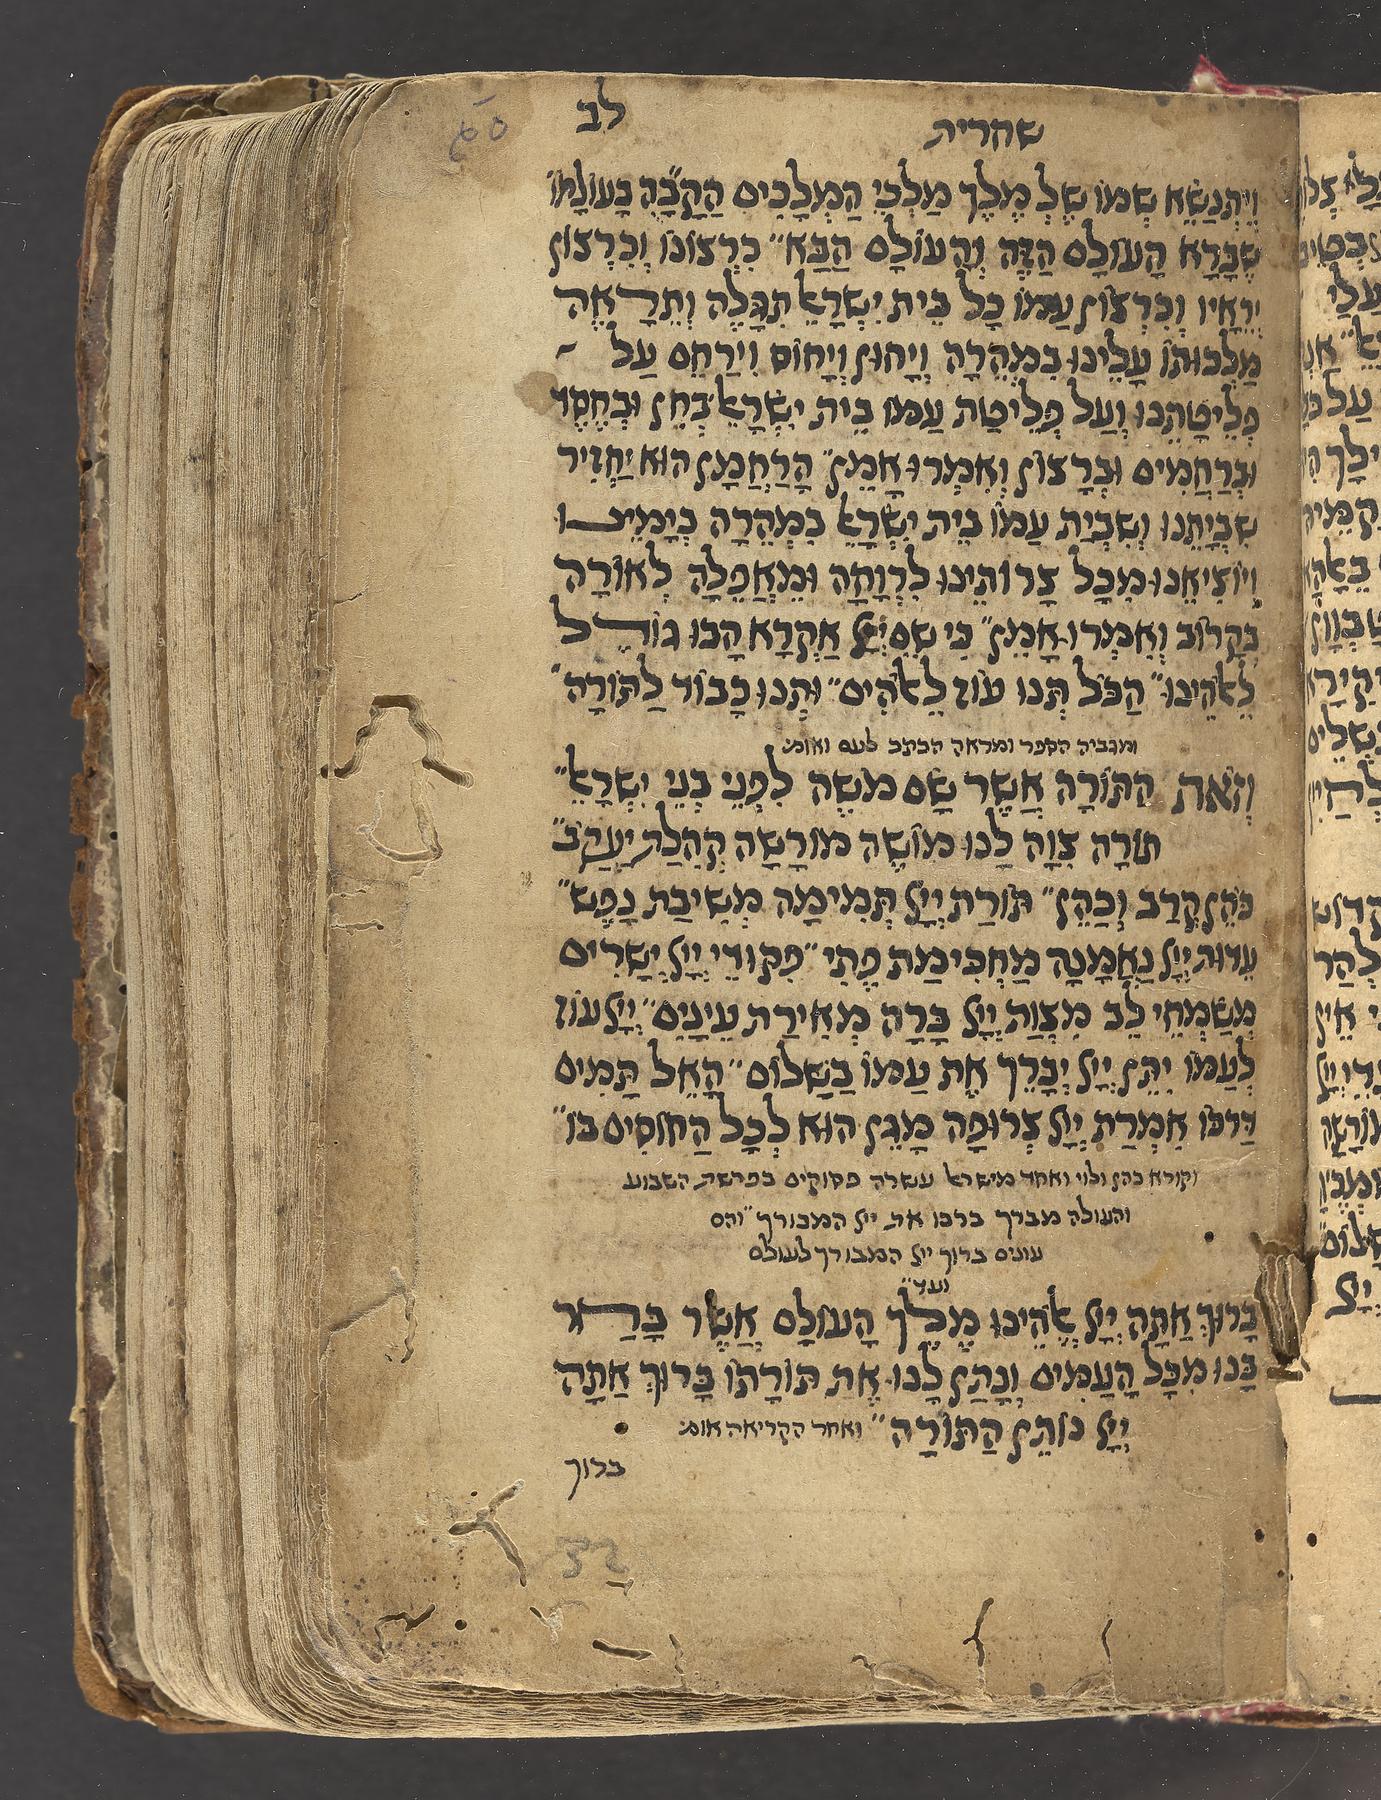 לב
שחרית
וְיִתְנַשֵּׂא שְׁמוֹ שֶׁל מֶלֶךְ מַלְכֵי הַמְלָכִים הַקָּ״בָּה בָּעוֹלָמוֹ
שֶׁבָּרָא הָעוֹלָם הַזֶּה וְהָעוֹלָם הַבָּא״ כִּרְצוֹנוֹ וְכִרְצוֹן
יְרֵאָיו וְכִרְצוֹן עַמּוֹ כָּל בֵּית יִשְׂרָאֵ תִּגָּלֶה וְתֵרָאֶה
מַלְכוּתוֹ עָלֵינוּ בִּמְהֵרָה וְיָחוֹן וְיָחוֹס וִירַחֵם עַל
פְּלֵיטָתֵנוּ וְעַל פְּלֵיטַת עַמּוֹ בֵּית יִשְׂרָאֵ בְּחֵן וּבְחֶסֶד
וּבְרַחֲמִים וּבְרָצוֹן וְאִמְרוּ אָמֵן״ הָרַחֲמָן הוּא יַחֲזִיר
שְׁבִיתֵנוּ וְשִׁבְיַת עַמּוֹ בֵּית יִשְׂרָאֵ בִּמְהֵרָה בְּיָמֵינוּ
וְיוֹצִיאֵנוּ מִכָּל צָרוֹתֵינוּ לִרְוָחָה וּמֵאֲפֵלָה לְאוֹרָה
בְּקָרוֹב וְאִמְרוּ אָמֵן״ כִּי שֵׁם יְיָ אֶקְרָא הָבוּ גוֹדֶל
לֵאלֹהֵינוּ״ הַכֹּל תְּנוּ עוֹז לֵאלֹהִים״ וּתְנוּ כָבוֹד לַתּוֹרָה״
ומגביה הספר ומראה הכתב לעם ואומ׳
וְזֹאת הַתּוֹרָה אֲשֶׁר שָׂם מֹשֶׁה לִפְנֵי בְּנֵי יִשְׂרָאֵ״
תּוֹרָה צִוָּה לָנוּ מוֹשֶׁה מוֹרָשָׁה קְהִלַּת יַעֲקֹב״
כֹּהֵן קְרַב וְכַהֵן״ תּוֹרַת יְיָ תְּמִימָה מְשִׁיבַת נָפֶשׁ״
עֵדוּת יְיָ נֶאֱמָנָה מַחְכִּימַת פֶּתִי״ פִּקּוּדֵי יְיָ יְשָׁרִים
מְשַׂמְּחֵי לֵב מִצְוַת יְיָ בָּרָה מְאִירַת עֵינָיִם״ יְיָ עוֹז
לְעַמּוֹ יִתֵּן יְיָ יְבָרֵךְ אֶת עַמּוֹ בַשָּׁלוֹם״ הָאֵל תָּמִים
דַּרְכּוֹ אִמְרַת יְיָ צְרוּפָה מָגֵן הוּא לְכָל הַחוֹסִים בּוֹ״
וקורא כהן ולוי ואחד מישראל עשרה פסוקים בפרשת השבוע
והעולה מברך ברכו את ייי המבורך״ והם
עונים ברוך ייי המבורך לעולם
ועד״
בָּרוּךְ אַתָּה יְיָ אֱלֹהֵינוּ מֶלֶךְ הָעוֹלָם אֲשֶׁר בָּחַר
בָּנוּ מִכָּל הָעַמִּים וְנָתַן לָנוּ אֶת תּוֹרָתוֹ בָּרוּךְ אַתָּה
יְיָ נוֹתֵן הַתּוֹרָה״ ואחר הקריאה אומ׳
ברוך
32